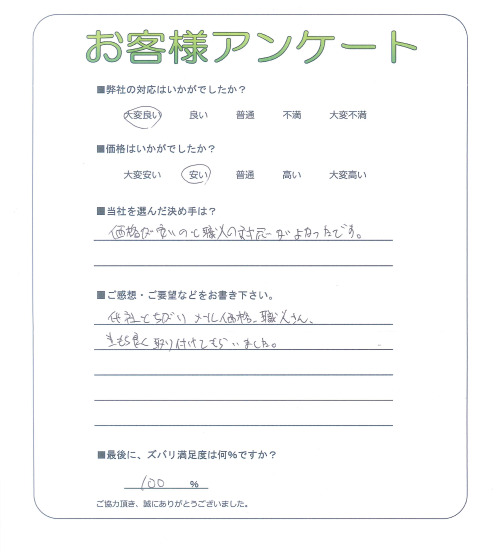 お客様アンケート
■弊社の対応はいかがでしたか？
大変良い 良い 普通 不満 大変不満
■価格はいかがでしたか？
大変安い 安い 普通 高い 大変高い
■当社を選んだ決め手は？
価格が安いのと職人の対応がよかったです。
■ご感想・ご要望などをお書き下さい。
他社とちがい メール 価格、職人さん、
良く取り付けてもらいました。
■最後に、ズバリ満足度は何％ですか？
100 ％
ご協力頂き、誠にありがとうございました。